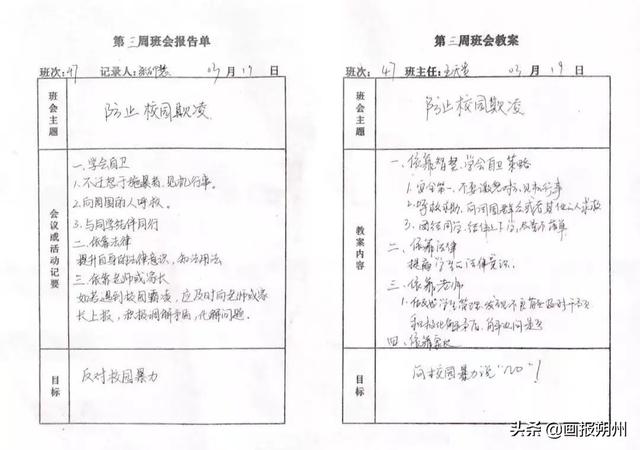 第三周班会报告单
班次:47 记录人: 03月19日
班会主题
防止校园欺凌
会议或活动记要
一、学会自卫
1.不迁怒于施暴者,见机行事。
2.向周围的人呼救。
3.与同学结伴同行
二、依靠法律
提升自身的法律意识,知法用法
三、依靠老师或家长
如若遇到校园霸凌,应及时向老师或家
长上报,积极调解矛盾,化解问题。
目标
反对校园暴力
第三周班会教案
班次:47 班主任: 03月19日
班会主题
防止校园欺凌
教案内容
一、依靠智慧,学会自卫策略
1.安全第一,不要激怒对方,见机行事
2.呼救求助,向周围群众或者其他人求救
3.团结同学,结伴上下学,
二、依靠法律
提高学生法律意识。
三、依靠老师
四、依靠家长
目标
向校园暴力说“NO”!
头条@画报朔州